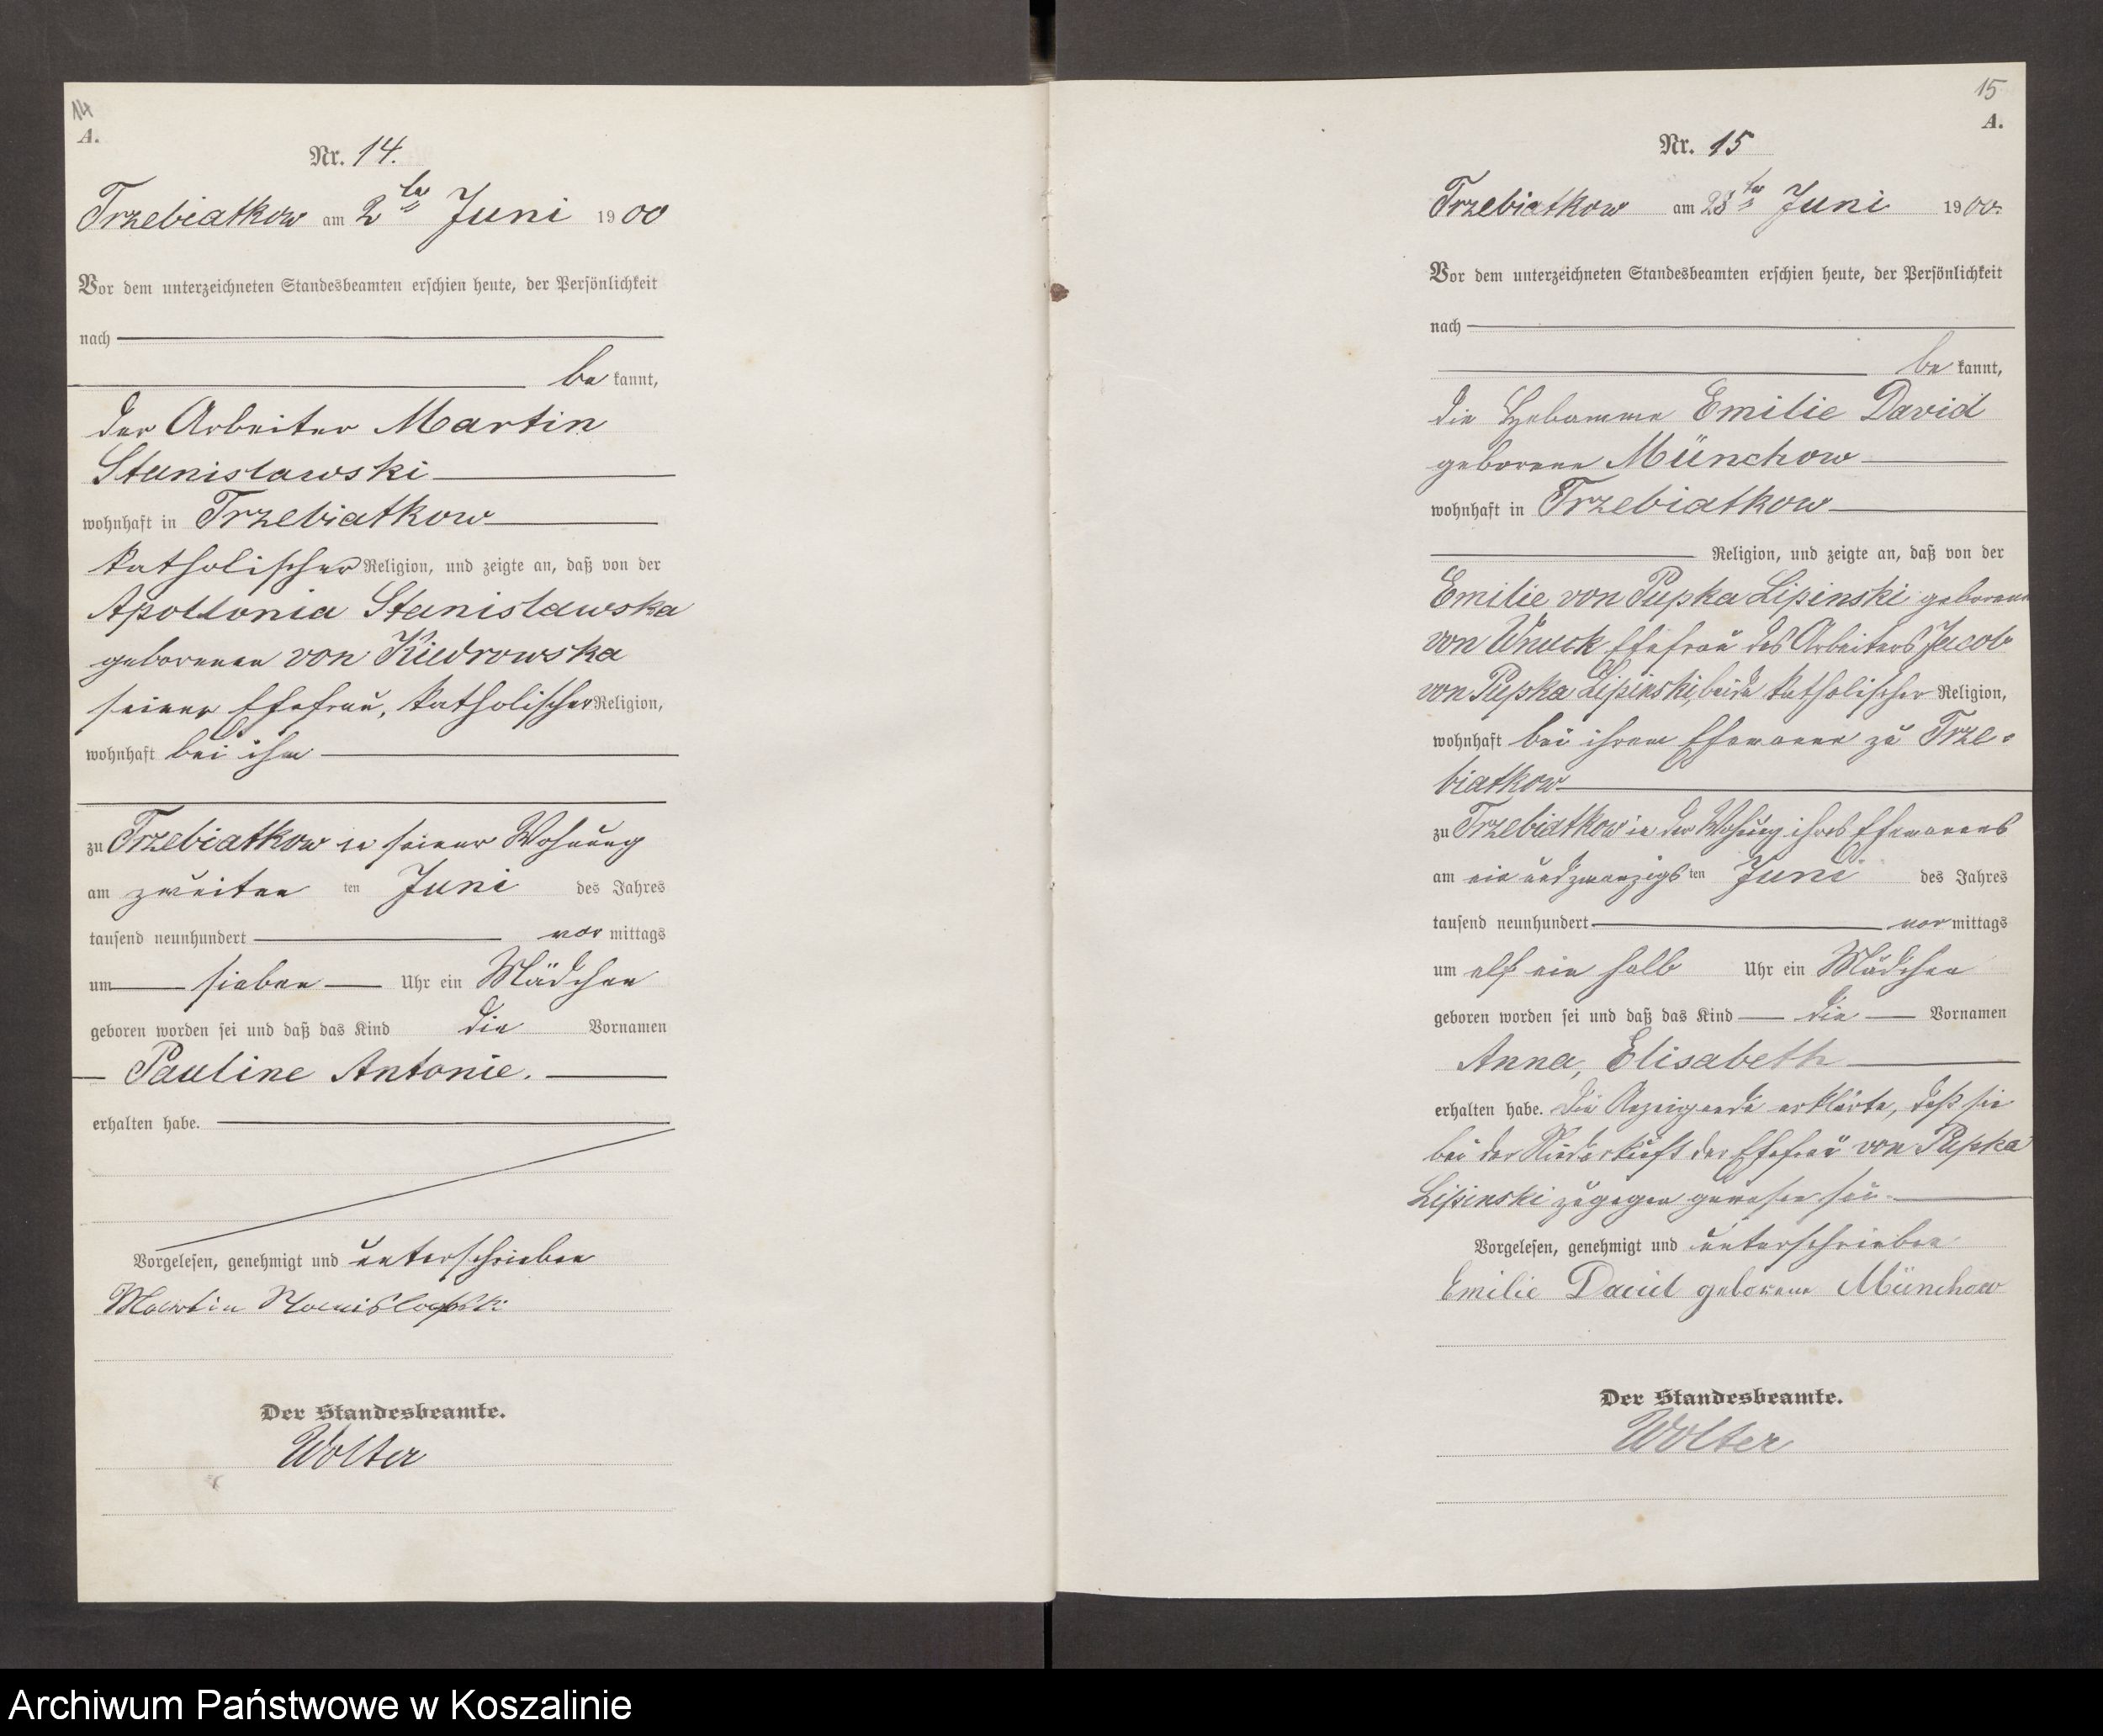 14
A.
Nr. 14.
Trzebiatkow am 2ten Juni 1900
Vor dem unterzeichneten Standesbeamten erschien heute, der Persönlichkeit
nach
be kannt,
der Arbeiter Martin
Stanislawski
wohnhaft in Trzebiatkow
katholischer Religion, und zeigte an, daß von der
Apollonia Stanislawska
geborenen von Kiedrowska
seiner Ehefrau, katholischer Religion,
wohnhaft bei ihm
zu Trzebiatkow in seiner Wohnung
am zweiten ten Juni des Jahres
tausend neunhundert vor mittags
um sieben Uhr ein Mädchen
geboren worden sei und daß das Kind die Vornamen
Pauline Antonie.
erhalten habe.
Vorgelesen, genehmigt und unterschrieben
Martin Stanislawski
Der Standesbeamte.
Wolter
15
A.
Nr. 15
Trzebiatkow am 28ten Juni 1900.
Vor dem unterzeichneten Standesbeamten erschien heute, der Persönlichkeit
nach
be kannt,
die Hebamme Emilie David
geborene Münchow
wohnhaft in Trzebiatkow
Religion, und zeigte an, daß von der
Emilie von Pupka Lipinski geborene
von Wnuck Ehefrau des Arbeiters Jacob
von Pupka Lipinski, beide katholischer Religion,
wohnhaft bei ihrem Ehemanne zu Trze-
biatkow
zu Trzebiatkow in der Wohnung ihres Ehemannes
am ein und zwanzigs ten Juni des Jahres
tausend neunhundert vor mittags
um elf ein halb Uhr ein Mädchen
geboren worden sei und daß das Kind die Vornamen
Anna, Elisabeth
erhalten habe. Die Anzeigende erklärte, daß sie
bei der Niederkunft der Ehefrau von Pupka
Lipinski zugegen gewesen sei.
Vorgelesen, genehmigt und unterschrieben
Emilie David geborene Münchow
Der Standesbeamte.
Wolter
Archiwum Państwowe w Koszalinie